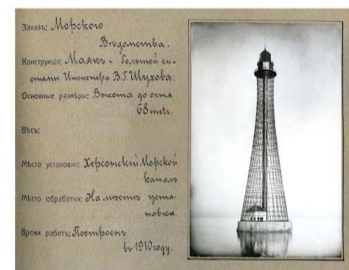 Заказъ: Морского
Вѣдомства.
Конструкція: Маякъ -
стемы Инженера В.Г. Шухова.
Основные размѣры: Высота до огня
68 mtr.
Вѣсъ:
Мѣсто установки: Херсонскій Морской
каналъ
Мѣсто обработки: На мѣстѣ уста-
новки.
Время работы: Построенъ
въ 1910 году.